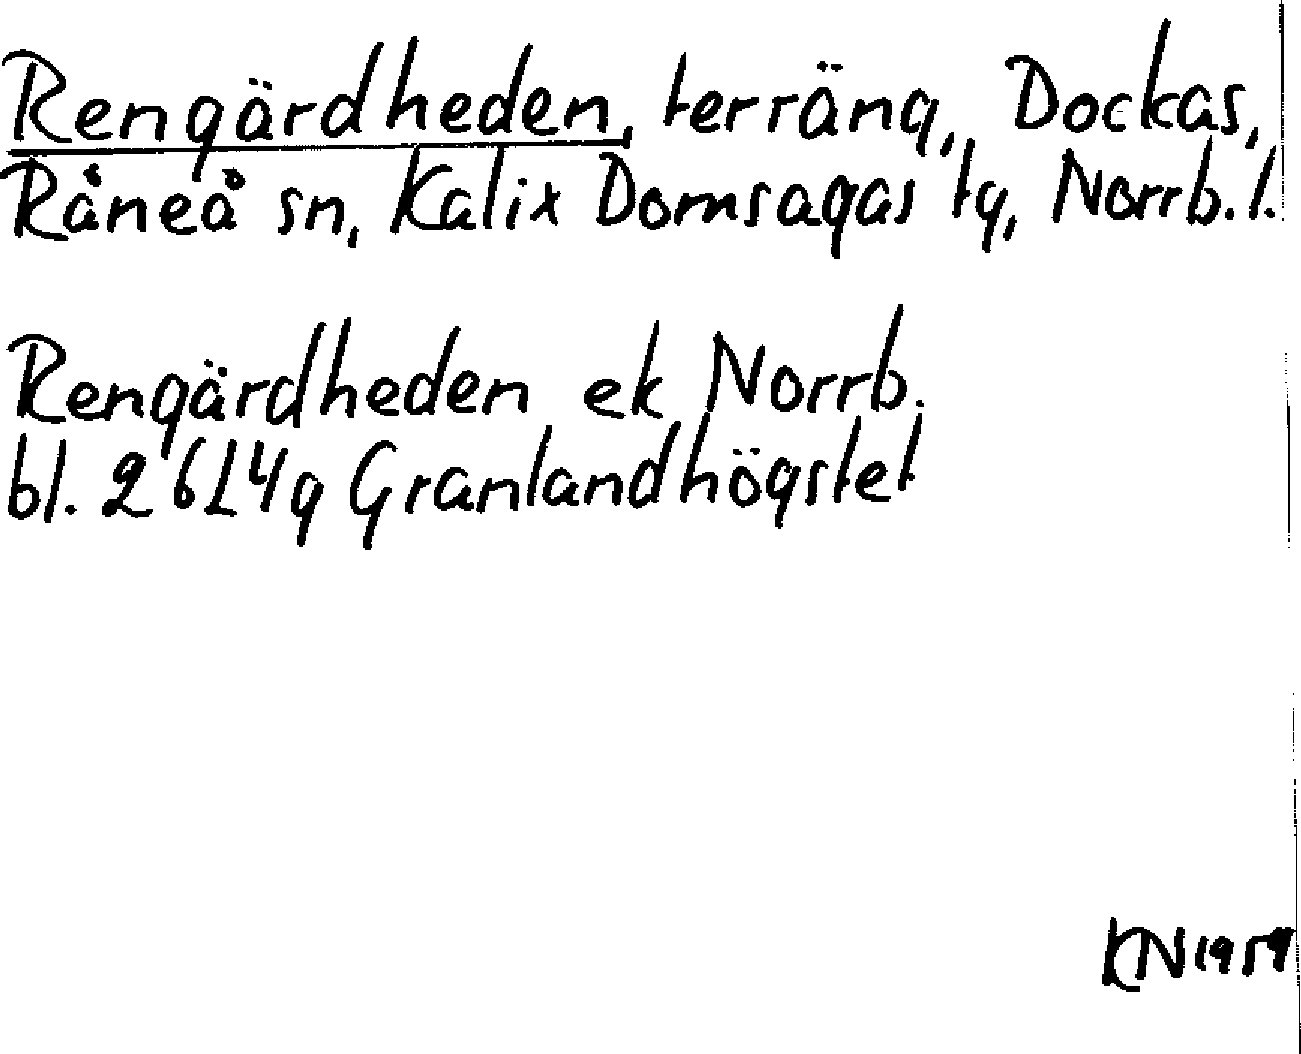 Rengärdheden, terräng, Dockas,
Råneå sn, Kalix Domsagas tg, Norrb. l.
Rengärdheden ek Norrb.
bl. 2614g Granlandhögstet
KN 1959